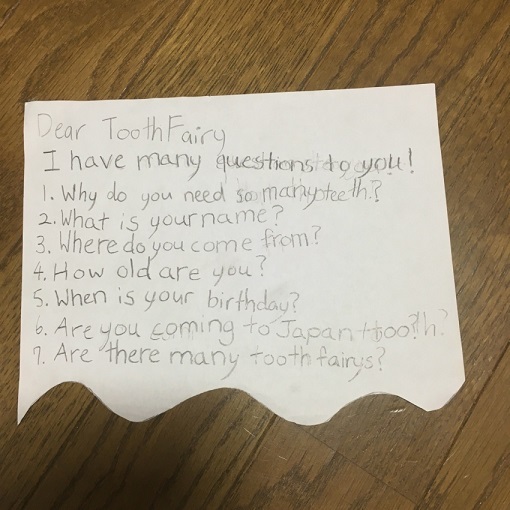 Dear Tooth Fairy
I have many questions to you!
1. Why do you need so many teeth?
2. What is your name?
3. Where do you come from?
4. How old are you?
5. When is your birthday?
6. Are you coming to Japan too?
7. Are there many tooth fairys?